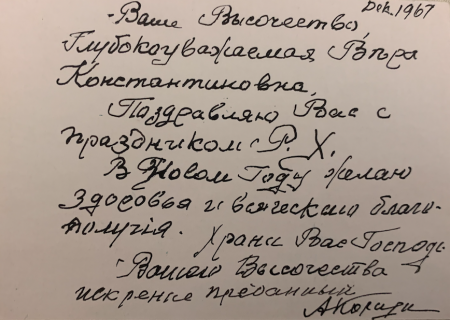 Dek. 1967
Ваше Высочество,
Глубокоуважаемая Вѣра
Константиновна,
Поздравляю Вас с
праздником Р. Х.
В Новом Году желаю
здоровья и всяческаго благо-
получія. Храни Вас Господь
Вашего Высочества
искренне преданный